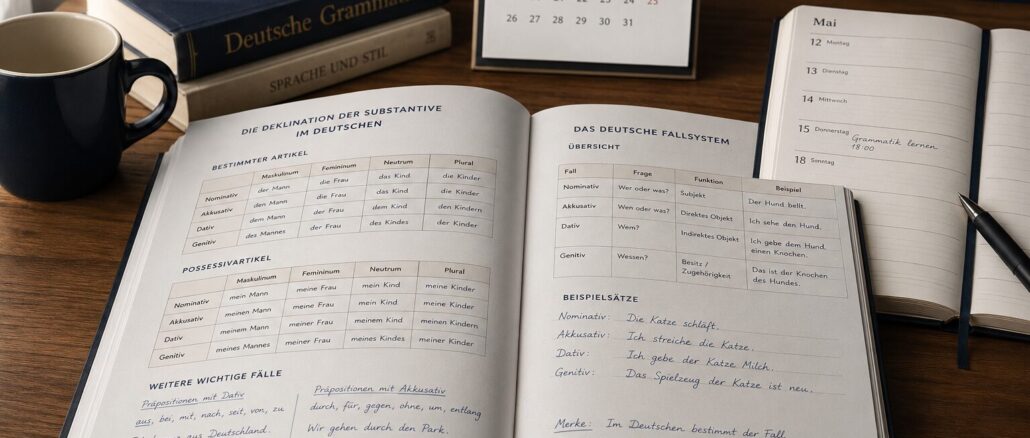 Deutsche Gramma
SPRACHE UND STIL
25
26 27 28 29 30 31
DIE DEKLINATION DER SUBSTANTIVE
IM DEUTSCHEN
BESTIMMTER ARTIKEL
Maskulinum Femininum Neutrum Plural
Nominativ der Mann die Frau das Kind die Kinder
Akkusativ den Mann die Frau das Kind die Kinder
Dativ dem Mann der Frau dem Kind den Kindern
Genitiv des Mannes der Frau des Kindes der Kinder
POSSESSIVARTIKEL
Maskulinum Femininum Neutrum Plural
Nominativ mein Mann meine Frau mein Kind meine Kinder
Akkusativ meinen Mann meine Frau mein Kind meine Kinder
Dativ meinem Mann meiner Frau meinem Kind meinen Kindern
Genitiv meines Mannes meiner Frau meines Kindes meiner Kinder
WEITERE WICHTIGE FÄLLE
Präpositionen mit Dativ
aus, bei, mit, nach, seit, von, zu
aus Deutschland.
Präpositionen mit Akkusativ
durch, für, gegen, ohne, um, entlang
Wir gehen durch den Park.
DAS DEUTSCHE FALLSYSTEM
ÜBERSICHT
Fall Frage Funktion Beispiel
Nominativ Wer oder was? Subjekt Der Hund bellt.
Akkusativ Wen oder was? Direktes Objekt Ich sehe den Hund.
Dativ Wem? Indirektes Objekt Ich gebe dem Hund
einen Knochen.
Genitiv Wessen? Besitz / Das ist der Knochen
Zugehörigkeit des Hundes.
BEISPIELSÄTZE
Nominativ: Die Katze schläft.
Akkusativ: Ich streiche die Katze.
Dativ: Ich gebe der Katze Milch.
Genitiv: Das Spielzeug der Katze ist neu.
Merke: Im Deutschen bestimmt der Fall
Mai
12 Montag
13 Dienstag
14 Mittwoch
15 Donnerstag Grammatik lernen
18:00
18 Sonntag